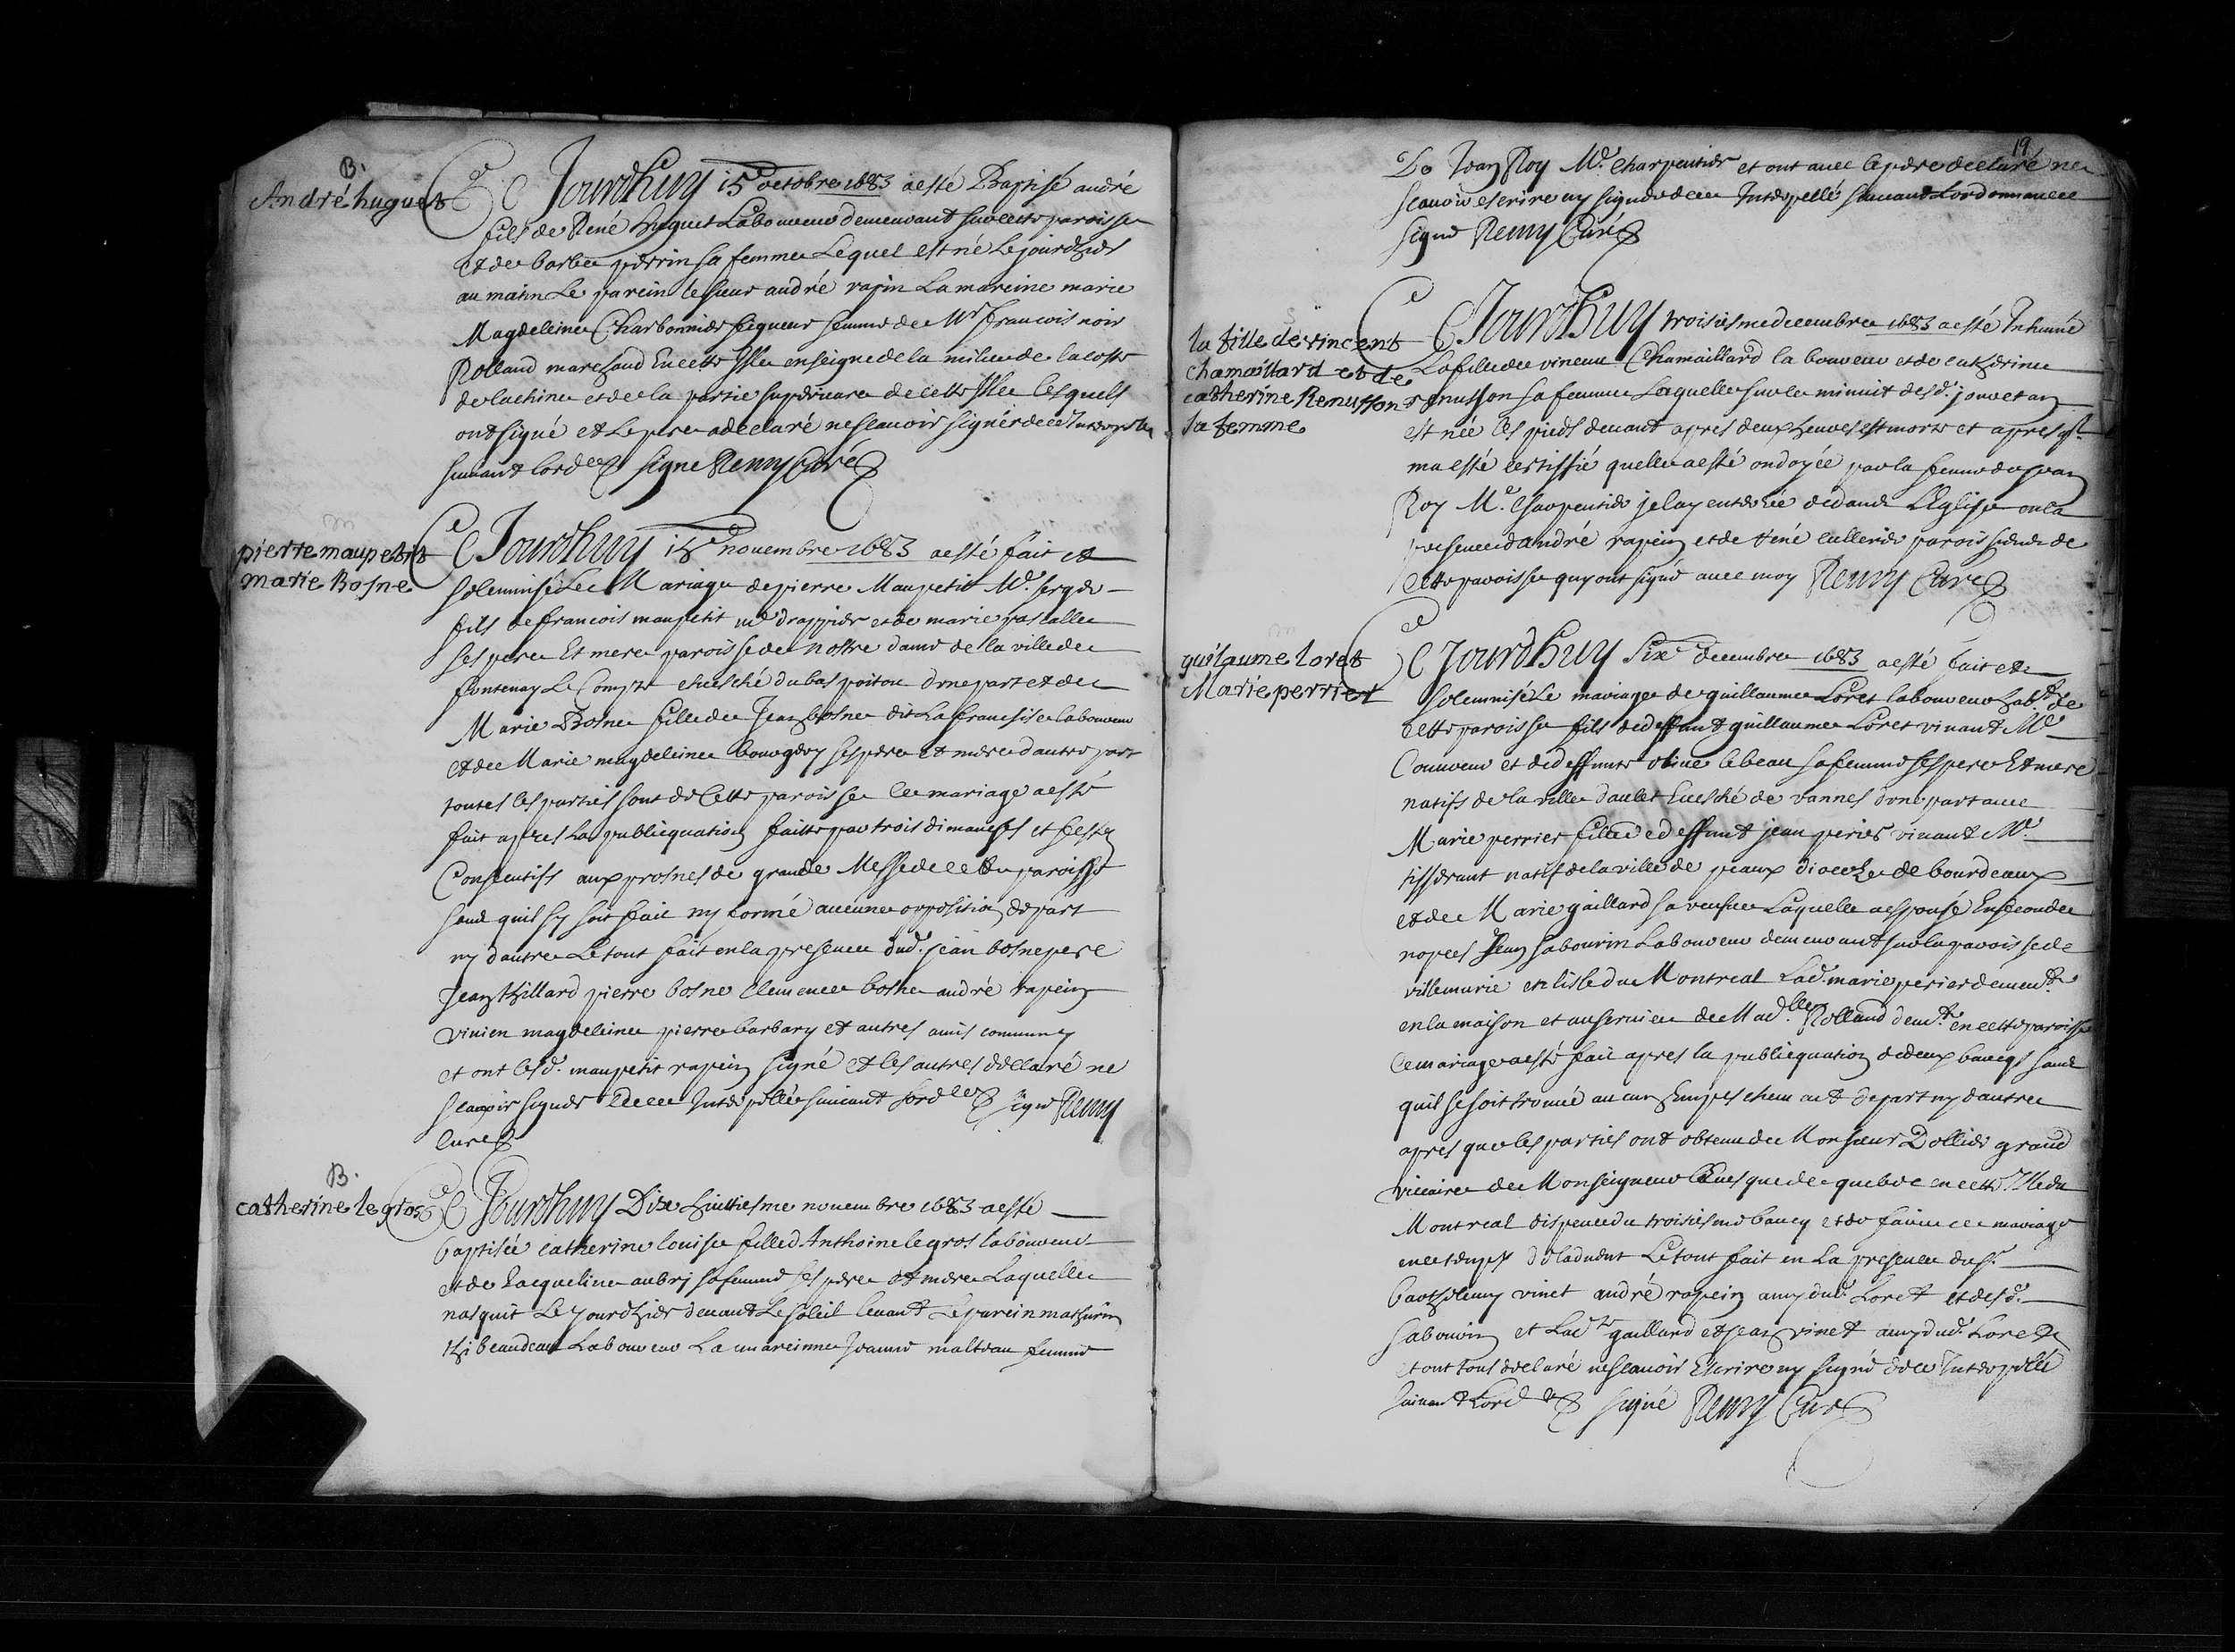 B.
André huguet
Ce Jourdhuy 15e octobre 1683 a esté Baptisé andré
fils de René huguet Laboureur demeurant sur cette paroisse
et de barbe perrin sa femme Lequel est né Le jour dhier
au matin Le parein le sieur andré rapin La mareine marie
Magdeleine Charbonnier femme de Mr francois noir
Rolland marchand En cette Isle enseigne de la milice de la coste
de lachine et de la partie superieure de cette Isle lesquels
ont signé et Le pere a declaré ne scauoir signer de ce Interpellé
suiuant lordce signé Remy Curé
m
pierre maupetit
marie Bosne
Ce Jourdhuy 15e nouembre 1683 a esté fait et
solemnisé Le Mariage de pierre Maupetit Me serger
fils de francois maupetit md drappier et de marie pascalle
ses pere Et mere paroisse de nostre dame de la ville de
fontenay Le Compte euesché du bas poitou dune part et de
Marie Bosne fille de Jean bosne dit La franchise laboureur
et de Marie magdeleine bourgery ses pere et mere dautre part
toutes les parties sont de Cette paroisse le mariage a esté
fait apres La publiquation faitte par trois dimanches et festes
Consecutifs aux prosnes de grande Messe de cette paroisse
sans quil sy soit fait ny formé aucune opposition de part
ny dautre Le tout fait en la presence dud. jean bosne pere
Jean thillard pierre bosne Clemence bosne andré rapein
viuien magdeleine pierre barbary et autres amis communs
et ont lesd. maupetit rapein signé et les autres declaré ne
scauoir signer de ce Interpellé suiuant Lordce signé Remy
curé
B.
catherine le gros
Ce Jourdhuy Dix huittiesme nouembre 1683 a esté
baptisée catherine louise fille d Anthoine le gros laboureur
et de Jacqueline aubry sa femme ses pere et mere Laquelle
nasquit Le Jour dhier deuant Le soleil leuant Le parein mathurin
thibeaudeau Laboureur La mareinne Jeanne malteau femme
19
De Jean Roy Me. Charpentier et ont auec le pere declaré ne
scauoir escrire ny signer de ce Interpellé suiuant Lordonnance
signé Remy Curé
s
la fille de vincent
chamaillard et de
catherine Renusson
sa femme
Ce Jourdhuy troisiesme decembre 1683 a esté Inhumé
La fille de vincent Chamaillard laboureur et de catherine
renusson sa femme Laquelle sur le minuit desd. jour et an
est née les pieds deuant apres deux heures est morte et apres qil
ma esté certiffié quelle a esté ondoyée par la femme de Jean
Roy Me. Charpentier je lay enterrée dedans LEglise en la
presence dandré rapein et de rené cullerier paroissiens de
cette paroisse quy ont signé auec moy Remy Curé
m
guilaume loret
Marie perrier
Ce Jourdhuy Sixe decembre 1683 a esté fait et
solemnisé Le mariage de guillaume Loret laboureur habt. de
cette paroisse fils de deffunt guillaume Loret viuant Me
Couureur et de deffunte lebeau sa femme ses pere Et mere
natifs de la ville daulet Euesché de vannes dune part auec
Marie perrier fille de deffunt jean perier viuant Me.
tisserant natif de la ville de peaux diocese de bourdeaux
et de Marie gaillard sa veufue Laquelle a espousé En seconde
nopces Jean sabourin Laboureur demeurant sur la paroisse de
villemarie en lisle du Montreal Lad. marie perier demeurte
en la maison et au seruice de Madlle Rolland demte en cette paroisse
le mariage a esté fait apres la publiquation de deux bancqs sans
quil se soit trouué aucun Empeschement de part ny dautre
apres que les parties ont obtenu de Monsieur Dollier grand
vicaire de Monseigneur Euesque de quebec en cette Isle du
Montreal dispence du troisiesme bancq et de faire ce mariage
en ce temps de laduent Le tout fait en La presence du sr
barthelemy vinet andré rapein amy dud. Loret et desd.
sabourin et Lade gaillard et jean vinet amy dud. Loret
et ont tous declaré ne scauoir Escrire ny signé de ce Interpellé
suiuant Lordce signé Remy Curé